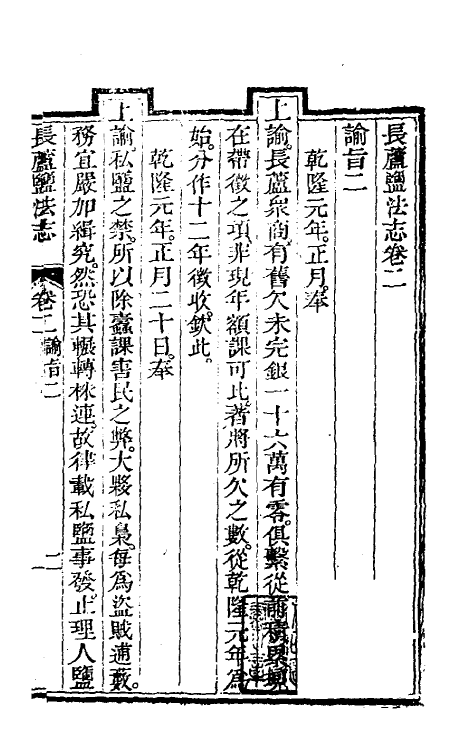 長蘆鹽法志卷二
諭旨二
乾隆元年正月奉
上諭長蘆衆商有舊欠未完銀一十六萬有零俱繫從前積累
在帶徵之項非現年額課可比著將所欠之數從乾隆元年為
始分作十二年徵收欽此
乾隆元年正月二十日奉
上諭私鹽之禁所以除蠹課害民之弊大夥私梟每為盜賊逋藪
務宜嚴加緝究然恐其輾轉株連故律載私鹽事發止理人鹽
長蘆鹽法志 卷二 諭旨二 二